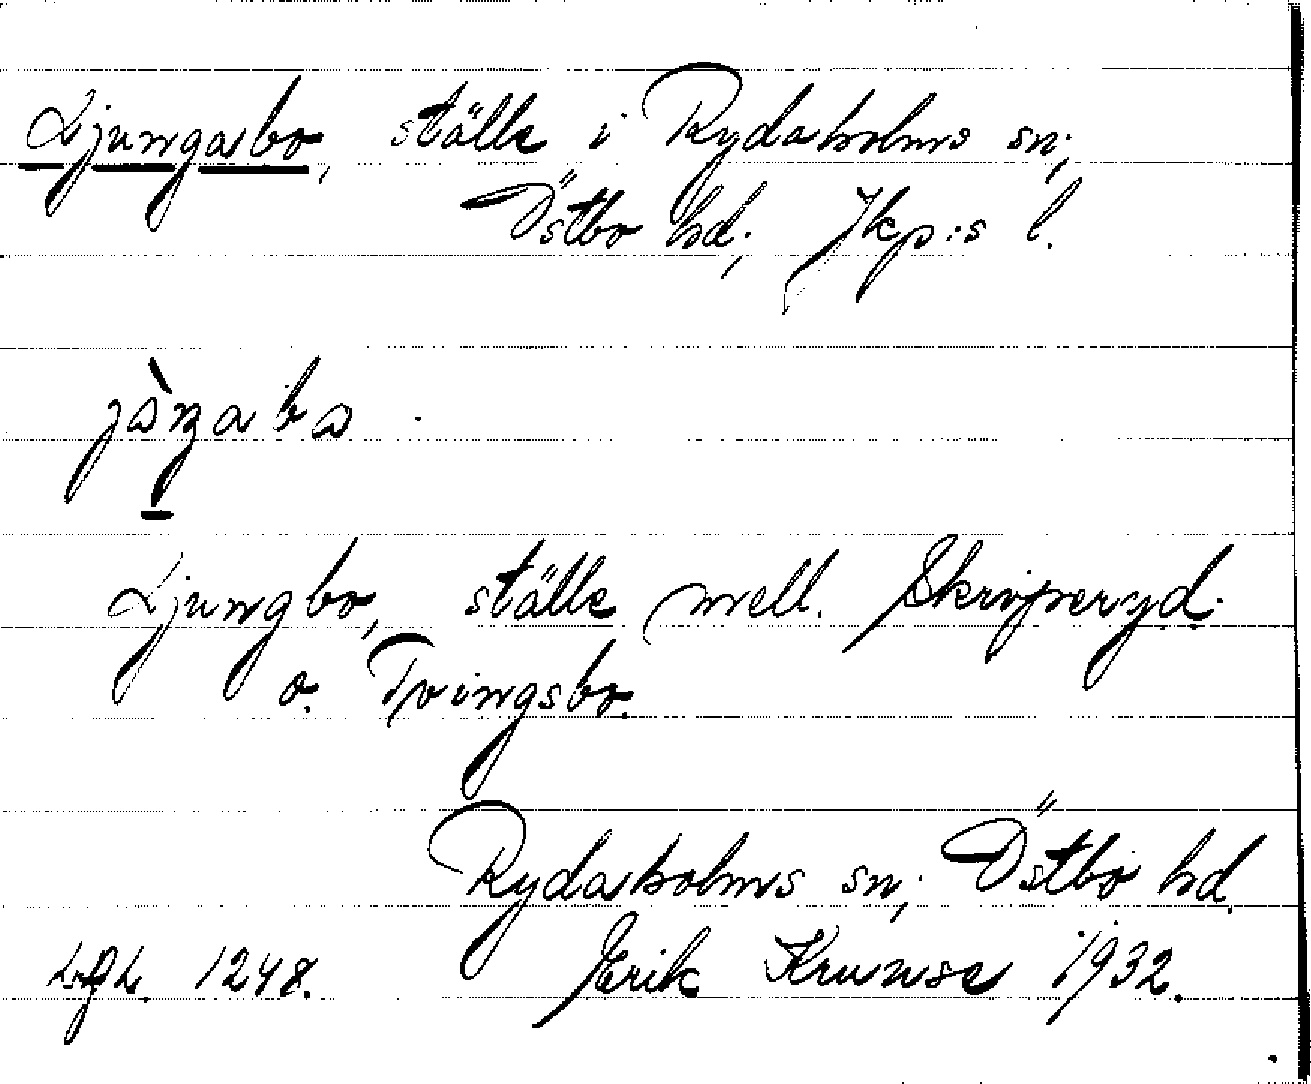 Ljungasbo, ställe i Rydaholms sn;
Östbo hd; Jkp:s l.
Ljungbo, ställe mell. Skriperyd
o. Tvingsbo.
Rydaholms sn; Östbo hd.
1248. Erik Krunse 1932.